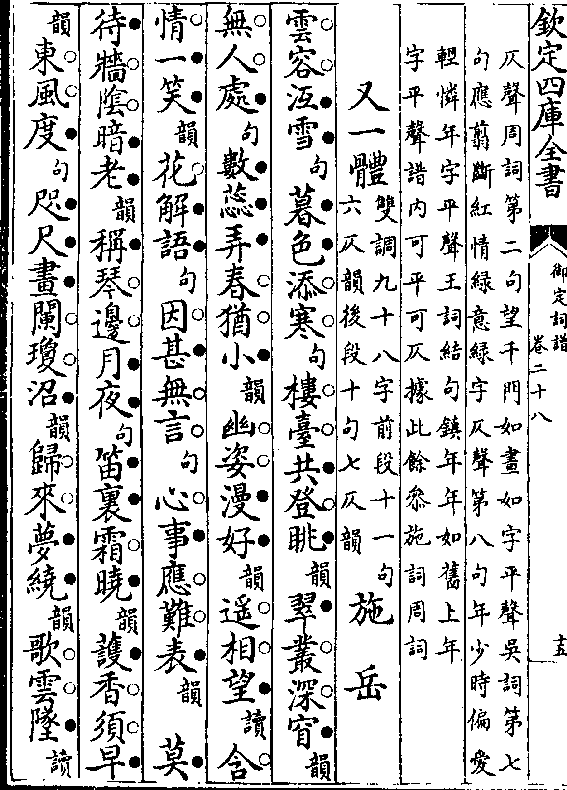 欽定四庫全書
御定詞譜
卷二十八
十五
仄聲周詞第二句望千門如晝如字平聲吳詞第七
句應翦斷紅情綠意綠字仄聲第八句年少時偏愛
輕憐年字平聲王詞結句鎮年年如舊上年
字平聲譜內可平可仄據此餘參施詞周詞
又一體 雙調九十八字前段十一句
六仄韻後段十句七仄韻 施岳
雲容沍雪句暮色添寒句樓臺共登眺韻翠叢深窅韻
無人處句數蕊弄春猶小韻幽姿漫好韻遥相望讀含
情一笑韻花解語句因甚無言句心事應難表韻 莫
待牆陰暗老韻稱琴邊月夜句笛裏霜曉韻護香須早
韻東風度句咫尺畫闌瓊沼韻歸來夢繞韻歌雲墜讀